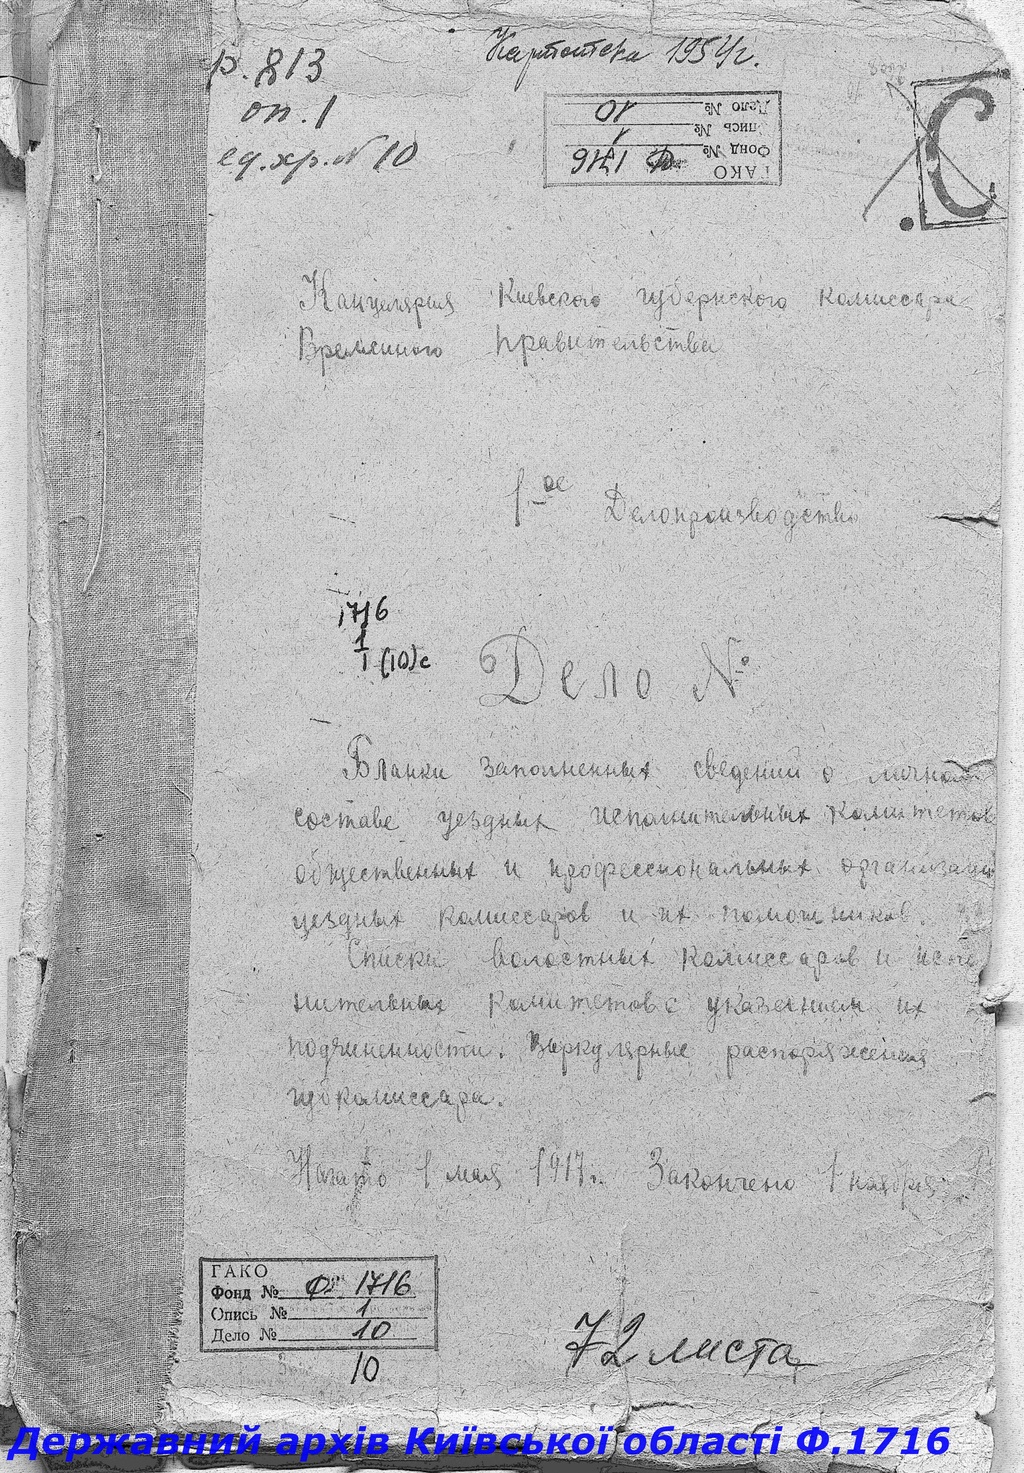 р. 813
оп. 1
ед. хр. N 10
Картотека 1954г.
ГАКО
Фонд № Ф 1716
Опись № 1
Дело № 10
С
Канцелярия Киевского губернского комиссара
Временного правительства
1-ое Делопроизводство
1716
1
1 (10)с
Дело №
Бланки заполненных сведений о личном
составе уездных исполнительных комитетов
общественных и профессиональных организаций
уездных комиссаров и их помощников.
Списки волостных комиссаров и испол
нительных комитетов с указанием их
подчиненности. Циркулярные распоряжения
губкомиссара.
Начато 1 мая 1917г. Закончено 1 ноября
ГАКО
Фонд № Ф. 1716
Опись № 1
Дело № 10
10
72 листа
Державний архів Київської області Ф.1716